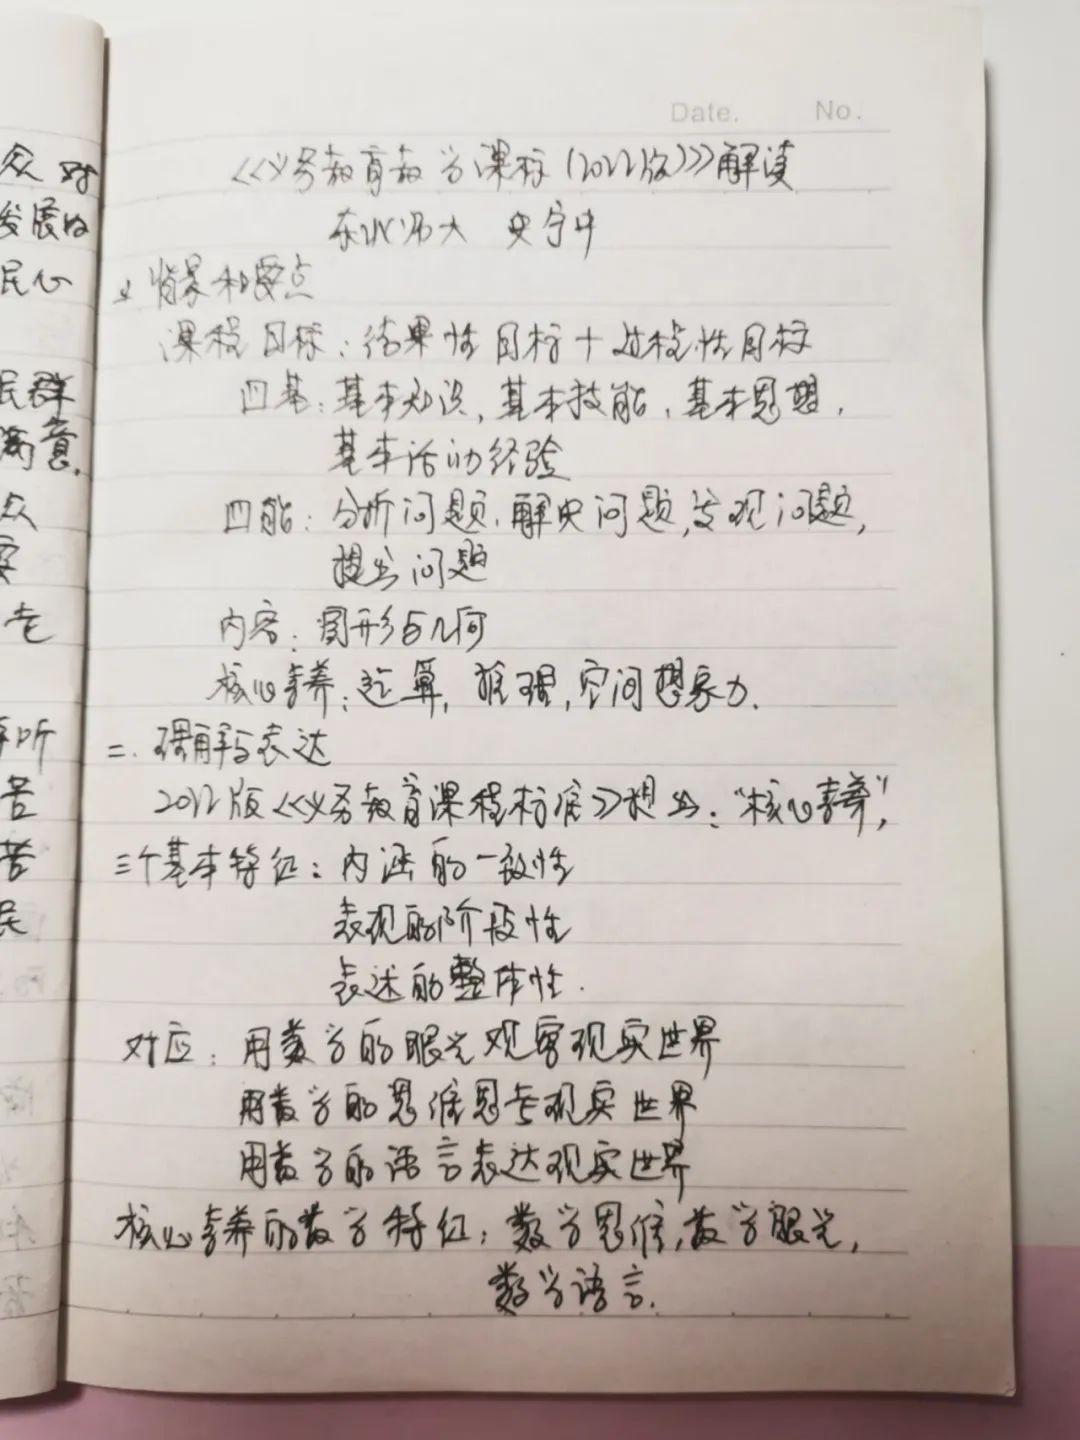 Date. No.
《义务教育数学课标(2022版)》解读
东北师大 史宁中
背景和要点
课程目标:结果性目标+过程性目标
四基:基本知识,基本技能,基本思想,
基本活动经验
四能:分析问题,解决问题,发现问题,
提出问题
内容:图形与几何
核心素养:运算,推理,空间想象力.
二.理解与表达
2022版《义务教育课程标准》提出:“核心素养”,
三个基本特征:内涵的一致性
表现的阶段性
表述的整体性.
对应:用数学的眼光观察现实世界
用数学的思维思考现实世界
用数学的语言表达现实世界
核心素养的数学特征:数学思维,数学眼光,
数学语言.
众 对
发展的
民心
民群
满意.
众
老
听
苦
苦
民